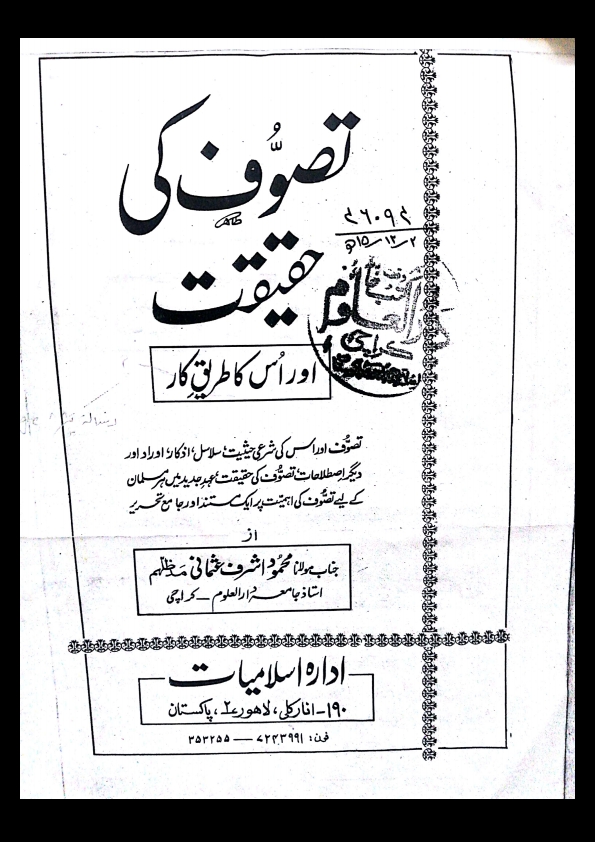 تصوّف کی
۳۶۰۹۳
۲؍۱۲؍۱۵ھ
حقیقت
دارالعلوم
کراچی
اور اُس کا طریقِ کار
تصوّف اور اس کی شرعی حیثیت، سلاسل، اذکار، اوراد اور
دیگر اصطلاحاتِ تصوّف کی حقیقت، عہدِ جدید میں ہر مسلمان
کے لیے تصوّف کی اہمیّت پر ایک مستند اور جامع تحریر
از
جناب مولانا محمود اشرف عثمانی مدظلہم
استاذ جامعہ دارالعلوم — کراچی
ادارہ اسلامیات
۱۹۰- انارکلی، لاہور ۲، پاکستان
فون: ۷۲۴۳۹۹۱ — ۳۵۳۲۵۵